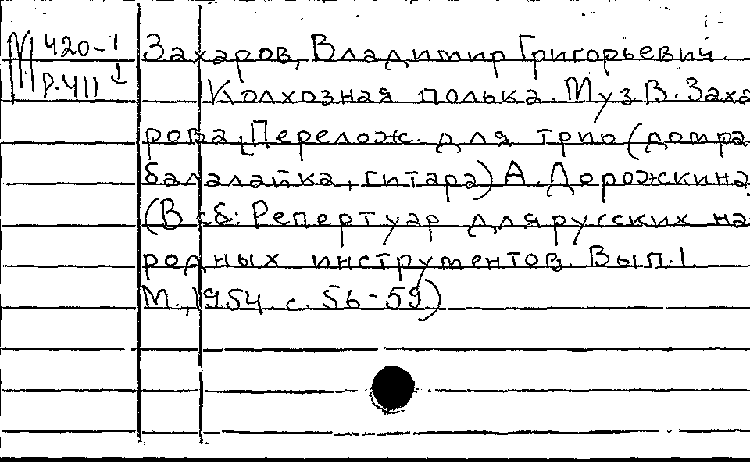 М 420-1 Захаров, Владимир Григорьевич.
Р.411 Колхозная полька. Муз. В. Заха
рова, Перелож. для трио (домра
балалайка, гитара) А. Дорожкина
(В сб: Репертуар для русских на
родных инструментов. Вып. 1
М., 1954. с. 56-59)